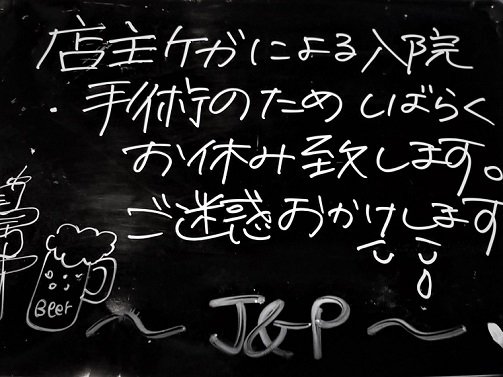 店主ケガによる入院
・手術のためしばらく
お休み致します。
ご迷惑おかけします
Beer
～J&P～